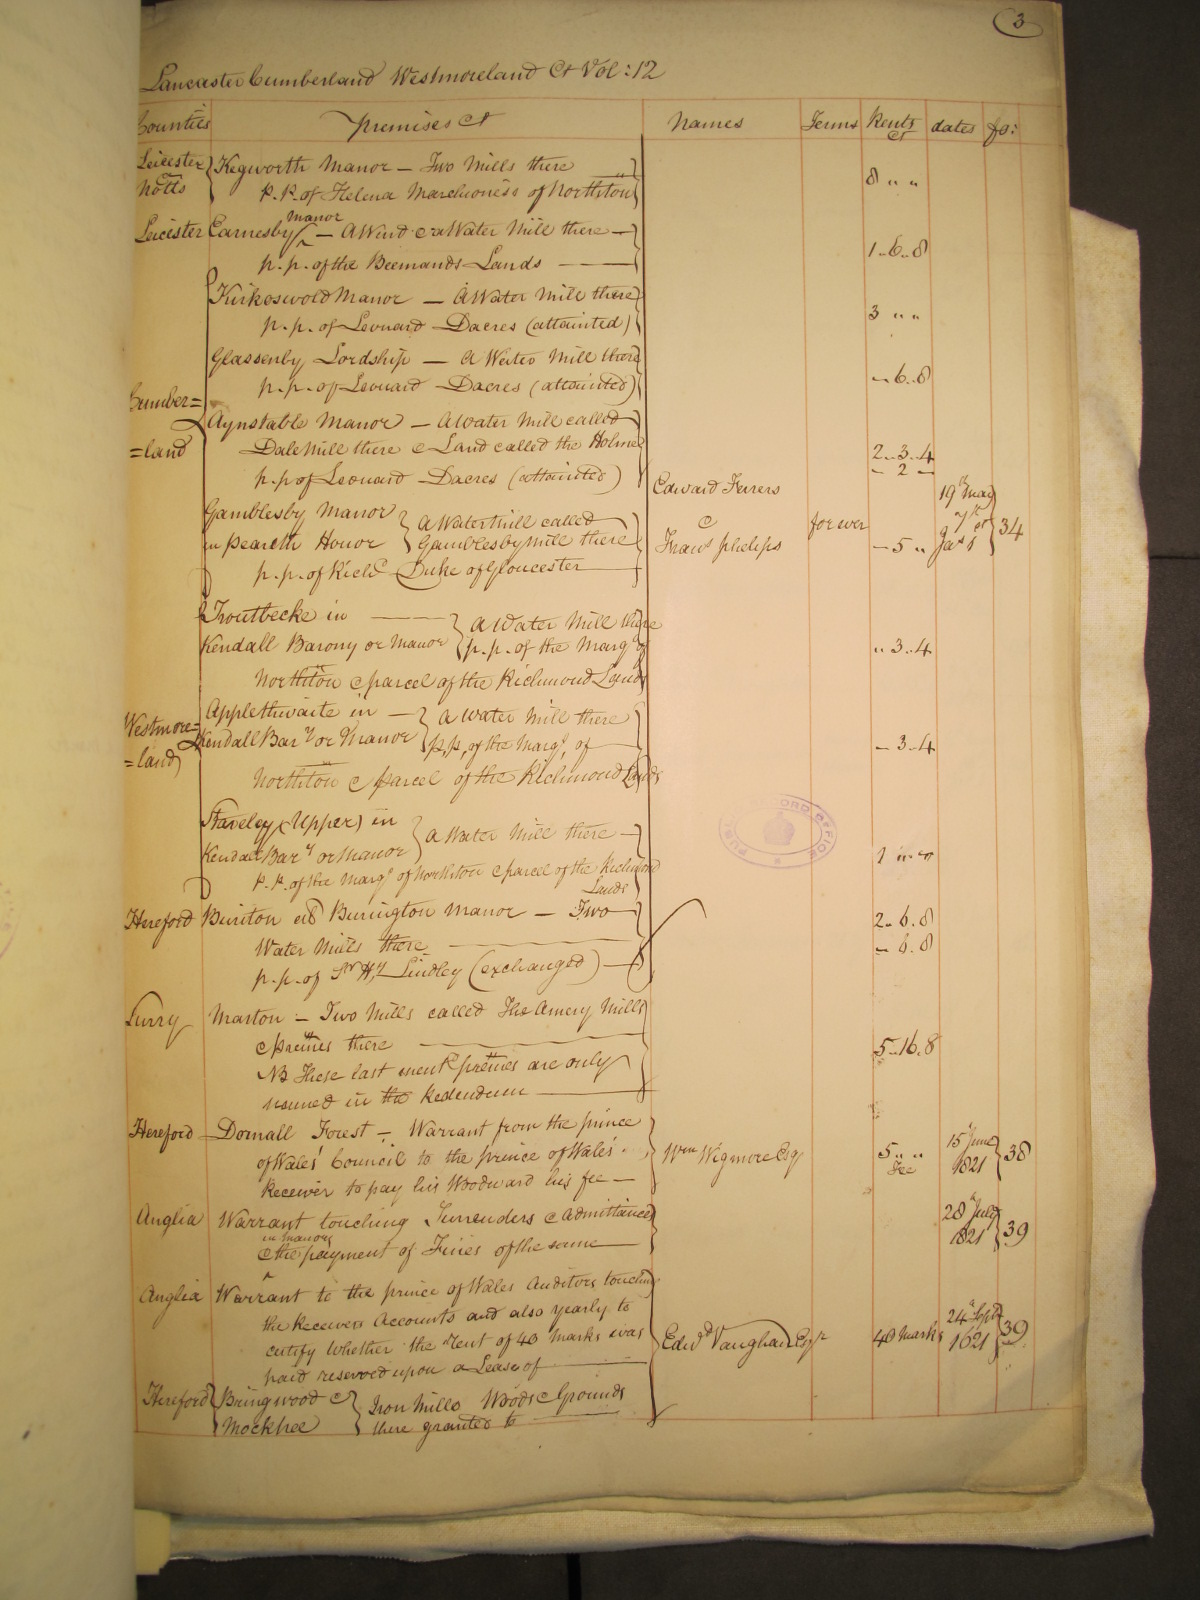 3
Lancaster Cumberland Westmoreland &c Vol: 12
Counties premises &c Names Terms Rents &c dates fo:
Leicester Kegworth Manor — Two Mills there
Notts p.p. of Helena Marchioness of Northton 8 " "
Leicester Earnesby manor — A Wind & a Water Mill there —
p.p. of the Beemands Lands — 1..6..8
Kirkoswold Manor — A Water Mill there
p.p. of Leonard Dacres (attainted) 3 " "
Glassenby Lordship — A Water Mill there
p.p. of Leonard Dacres (attainted) — 6..8
Cumber=
=land
Aynstable Manor — A Water Mill called
Dale Mill there & Land called the Holme 2..3..4
p.p. of Leonard Dacres (attainted) — 2 —
Gamblesby Manor A Water Mill called
in Pearith Honor Gamblesby Mill there — 5 "
p.p. of Richd Duke of Gloucester
Edward Ferrers
&
Frans phelips for ever 19th May 7th of Jas 1 34
Troutbecke in — A Water Mill there
Kendall Barony or Manor p.p. of the Marqs of " 3..4
Northton & parcel of the Richmond Lands
Westmore=
=land
Applethwaite in — A Water Mill there
Kendall Bary or Manor p.p. of the Marqs of — 3..4
Northton & parcel of the Richmond Lands
Staveley (Upper) in
Kendall Bary or Manor A Water Mill there —
p.p. of the Marqs of Northton & parcel of the Richmond
Lands
PUBLIC RECORD OFFICE
Hereford Buriton als Burington Manor — Two 2..6..8
Water Mills there — 6..8
p.p. of Sr Hy Lindley (exchanged) —
Surry Marton — Two Mills called The Amery Mills
& premes there 5..16..8
NB These last mentd premes are only
named in the Redendum
Hereford Dornall Forest — Warrant from the prince
of Wales' Council to the prince of Wales' Wm Wigmore Esq 5 " " Fee 15 June 1821 38
Receiver to pay his Woodward his fee —
Anglia Warrant touching Surrenders & Admittances
in manors
& the payment of Fines of the same 28 July 1821 39
Anglia Warrant to the prince of Wales Auditors touching
the Receivers Accounts and also yearly to
certify whether the Rent of 40 Marks was Edwd Vaughan Esqr 40 Marks 24 Sept 1621 39
paid reserved upon a Lease of
Hereford Bringwood & Iron Mills Woods & Grounds
Mocktree there granted to